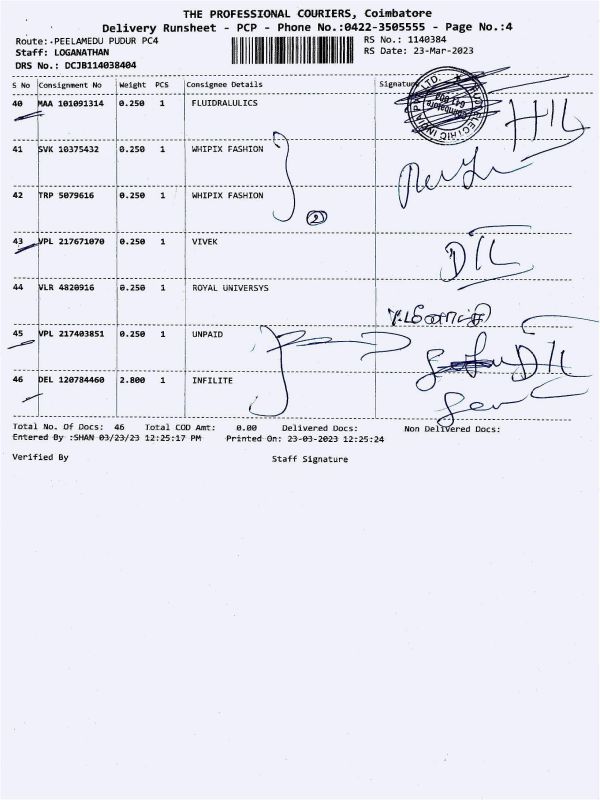 THE PROFESSIONAL COURIERS, Coimbatore
Delivery Runsheet - PCP - Phone No.:0422-3505555 - Page No.:4
Route: PEELAMEDU PUDUR PC4
RS No.: 1140384
Staff: LOGANATHAN
RS Date: 23-Mar-2023
DRS No.: DCJB114038404
S No Consignment No Weight PCS Consignee Details Signature
40 MAA 101091314 0.250 1 FLUIDRALULICS
41 SVK 10375432 0.250 1 WHIPIX FASHION
42 TRP 5079616 0.250 1 WHIPIX FASHION
2
43 VPL 217671070 0.250 1 VIVEK
44 VLR 4820916 0.250 1 ROYAL UNIVERSYS
45 VPL 217403851 0.250 1 UNPAID
46 DEL 120784460 2.800 1 INFILITE
Total No. Of Docs: 46 Total COD Amt: 0.00 Delivered Docs: Non Delivered Docs:
Entered By :SHAN 03/23/23 12:25:17 PM Printed On: 23-03-2023 12:25:24
Verified By Staff Signature